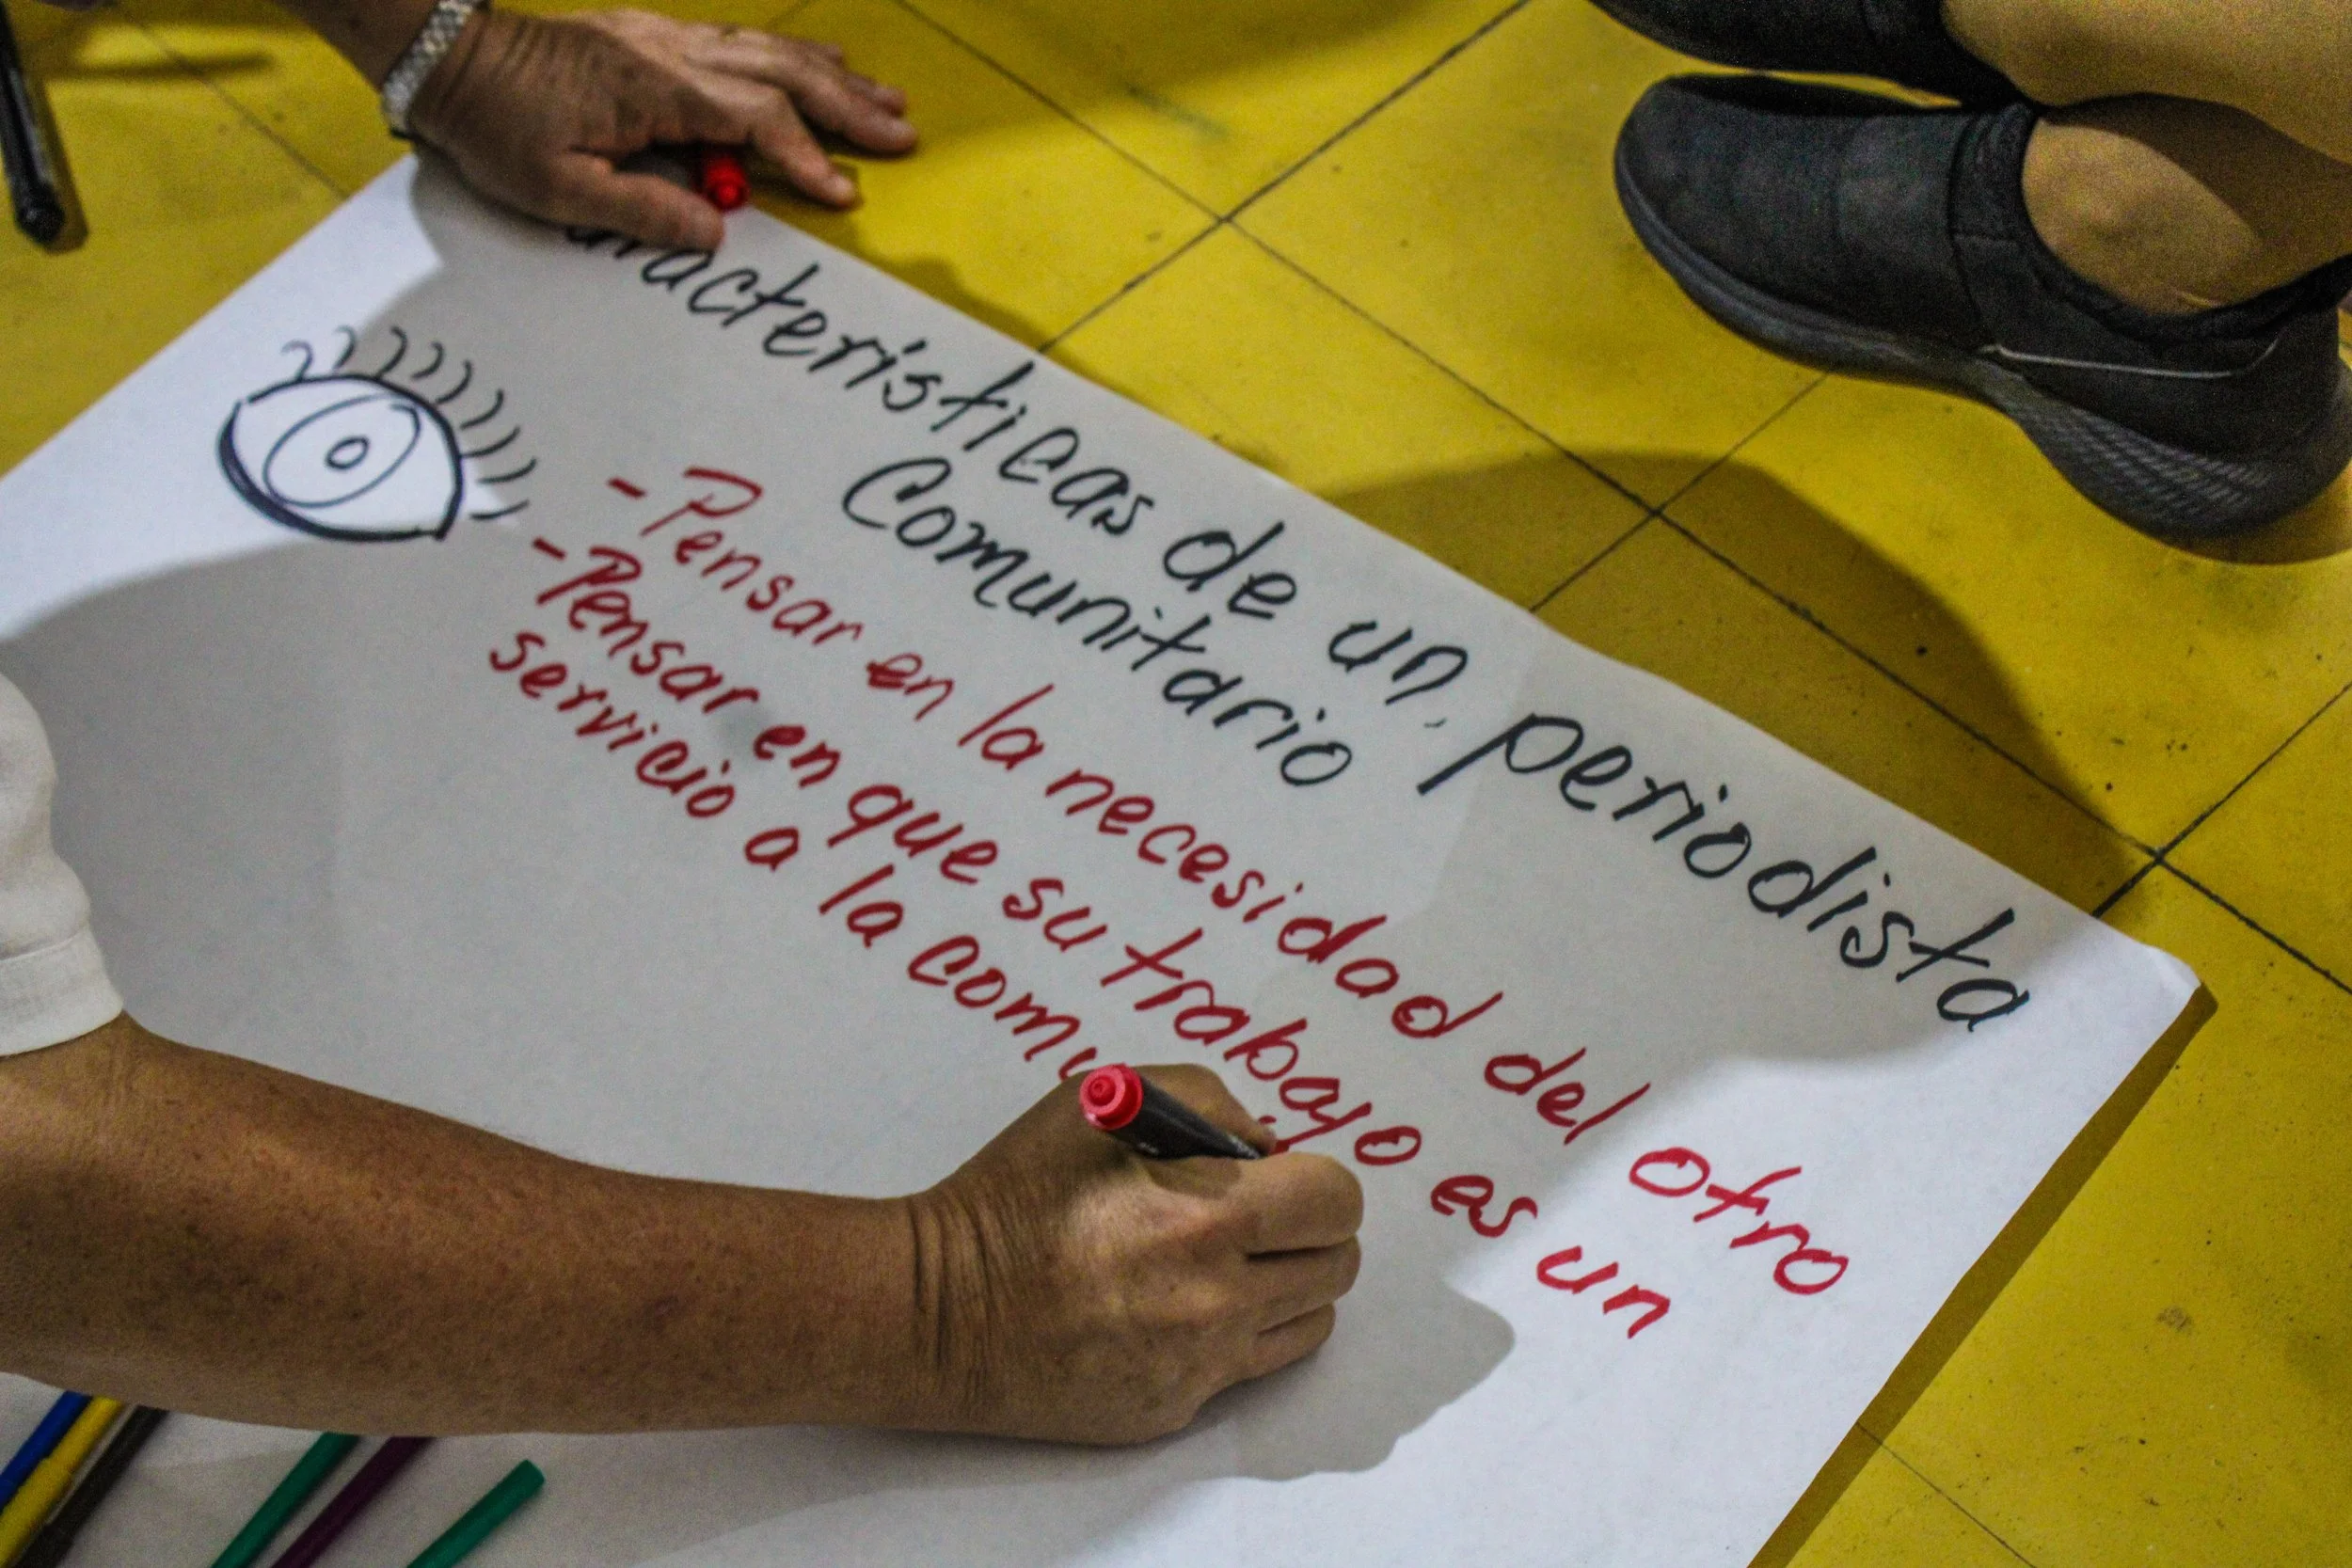 aracteristicas de un periodista
Comunitario
- Pensar en la necesidad del otro
- Pensar en que su trabajo es un
servicio a la comu